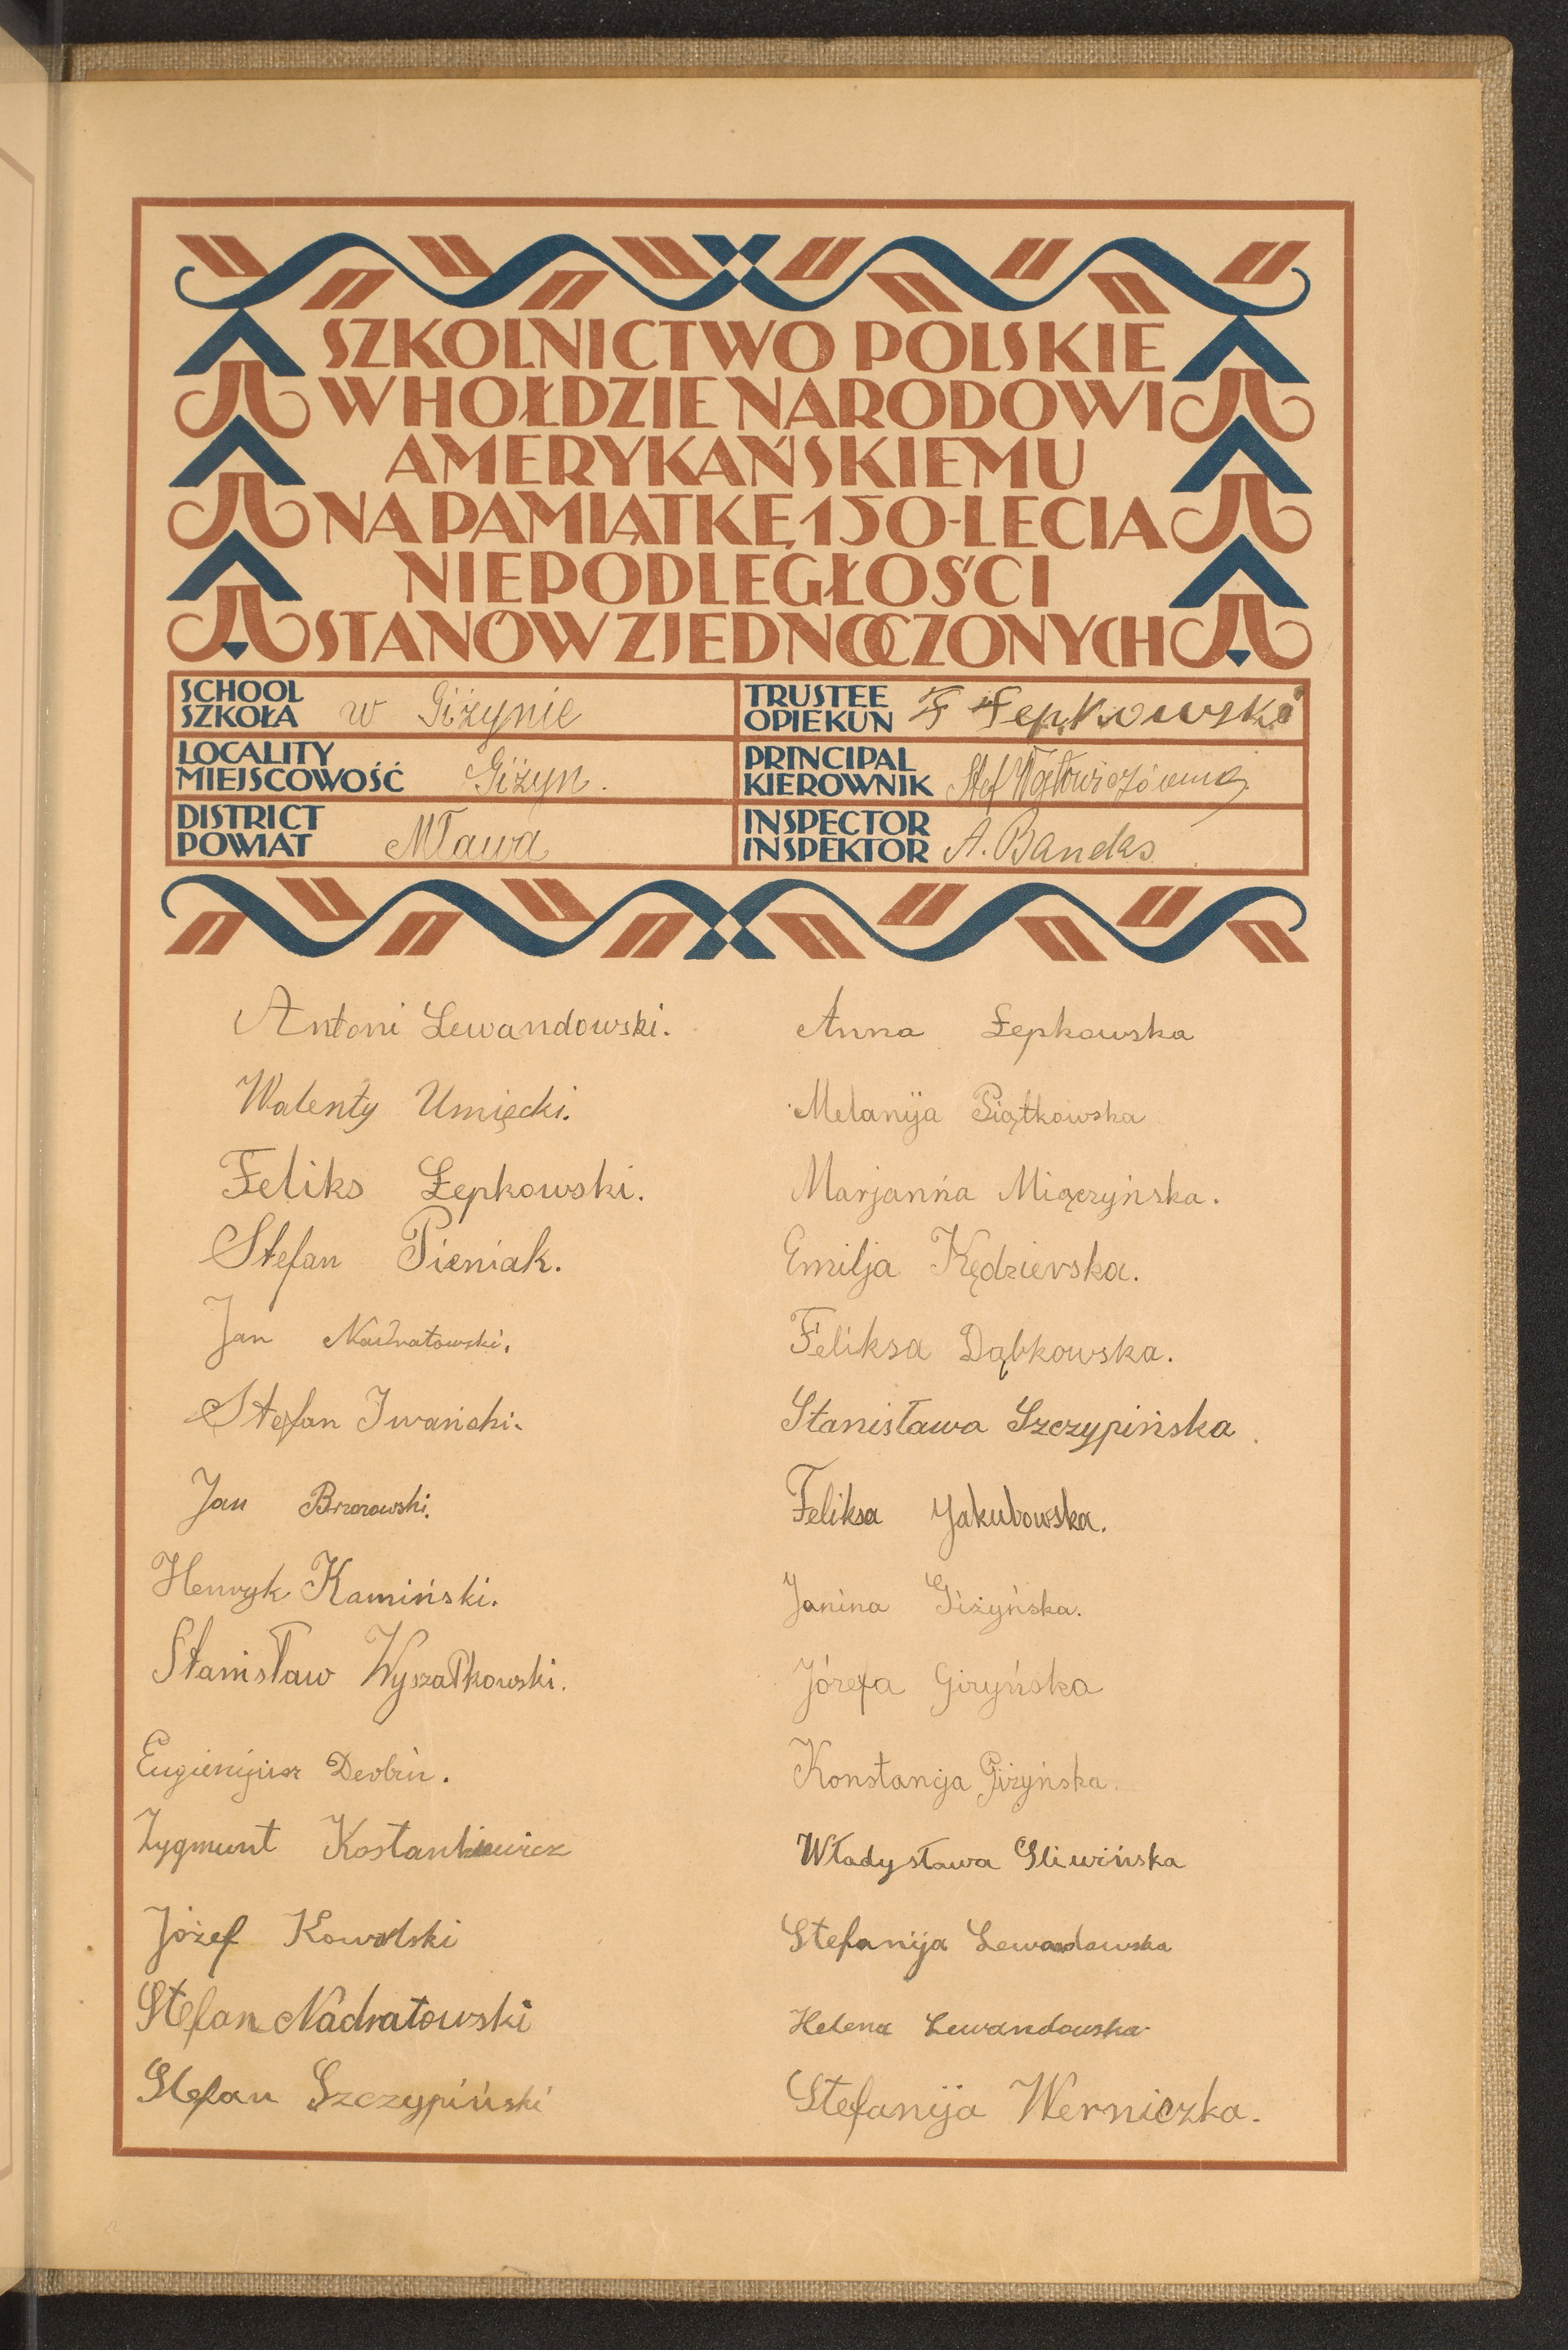 SZKOLNICTWO POLSKIE
W HOŁDZIE NARODOWI
AMERYKAŃSKIEMU
NA PAMIĄTKĘ 150-LECIA
NIEPODLEGŁOŚCI
STANÓW ZJEDNOCZONYCH
SCHOOL
SZKOŁA w Giżynie
TRUSTEE
OPIEKUN F Łepkowski
LOCALITY
MIEJSCOWOŚĆ Giżyn.
PRINCIPAL
KIEROWNIK Stef
DISTRICT
POWIAT Mława
INSPECTOR
INSPEKTOR A.
Antoni Lewandowski.
Walenty Umięcki.
Feliks Łepkowski.
Stefan Pieniak.
Jan Nadratowski.
Stefan Iwański.
Jan Brzozowski.
Henryk Kamiński.
Stanisław Wyszałkowski.
Zygmunt Kostankiewicz
Józef Kowalski
Stefan Nadratowski
Stefan Szczypiński
Anna Łepkowska
Melanija Piątkowska
Marjanna Miączyńska.
Emilja Kędzierska.
Feliksa Dąbkowska.
Stanisława Szczypińska
Feliksa Jakubowska.
Janina Giżyńska.
Józefa Giżyńska
Konstancja Giżyńska.
Władysława Sliwińska
Stefanija Lewandowska
Helena Lewandowska
Stefanija Werniczka.